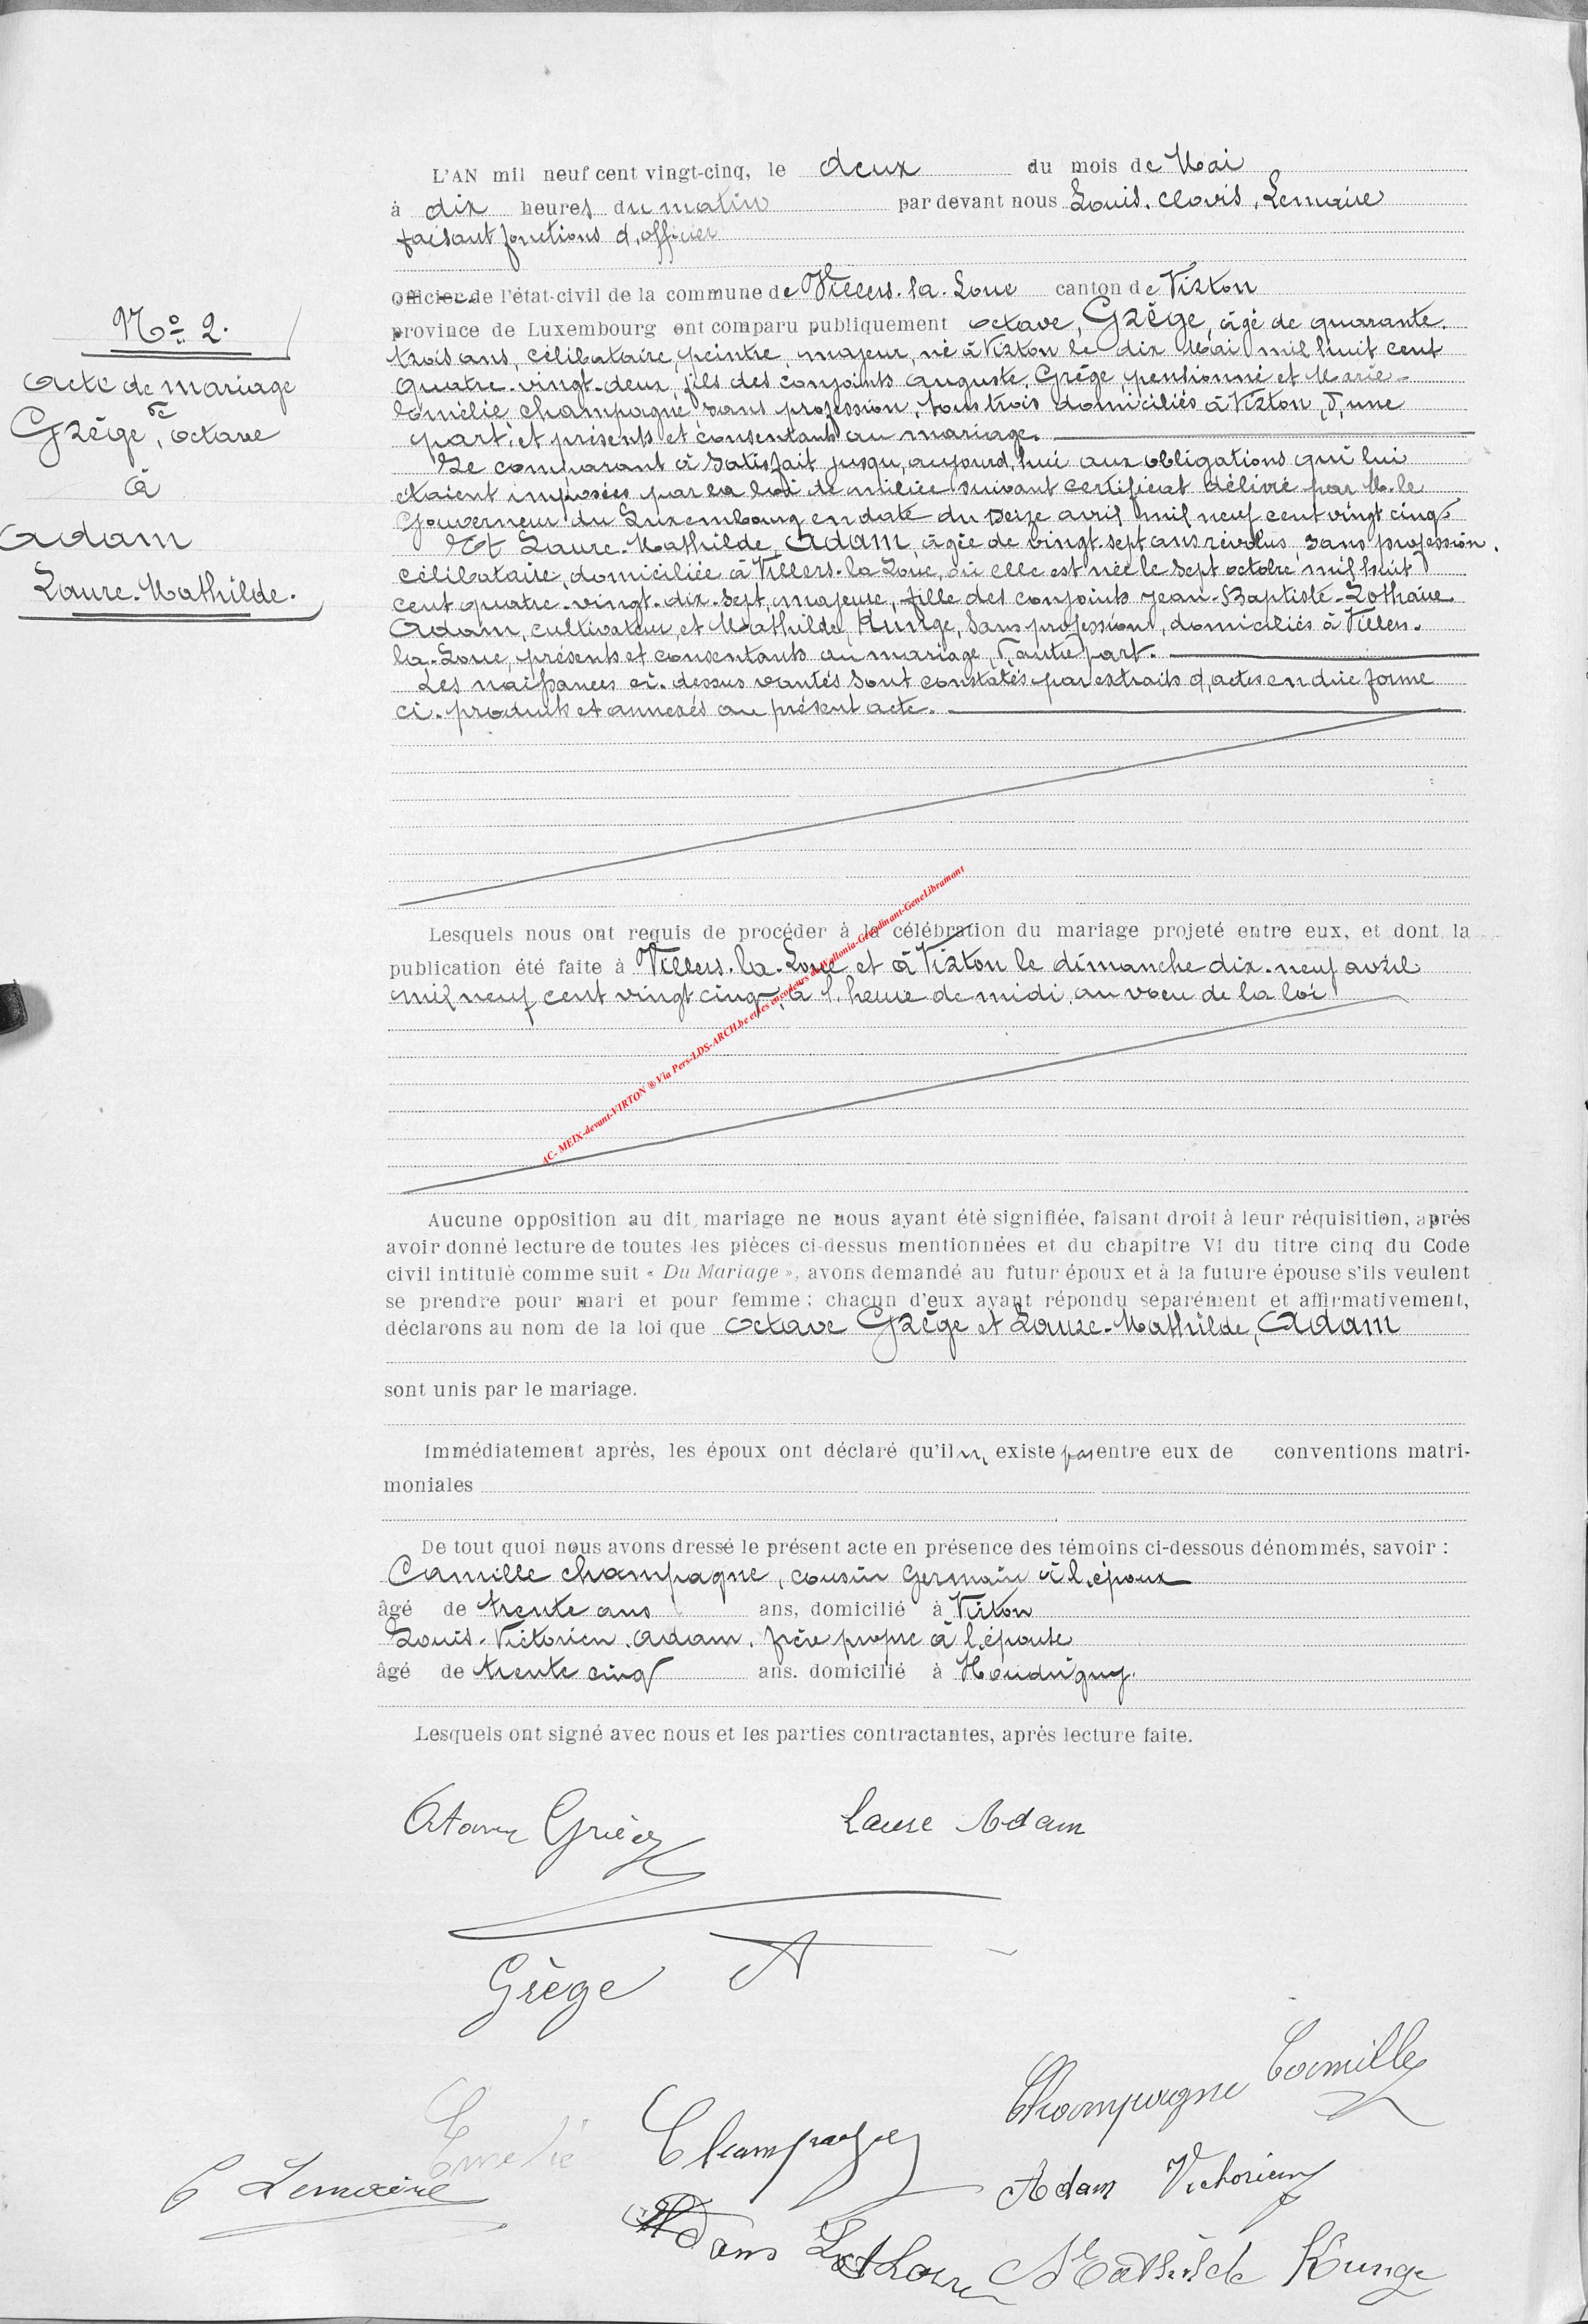 L'AN mil neuf cent vingt-cinq, le deux du mois de Mai
à dix heures du matin par devant nous Louis, Clovis, Lemaire
faisant fonctions d'officier
officier de l'état-civil de la commune de Villers-la-Loue canton de Virton
province de Luxembourg ont comparu publiquement Octave, Grège, âgé de quarante-
trois ans, célibataire, peintre, majeur, né à Virton le dix Mai mil huit cent
quatre-vingt-deux, fils des conjoints Auguste, Grège, pensionné et Marie-
Emélie, Champagne sans profession, tous trois domiciliés à Virton, d'une
part, et présents et consentants au mariage.
Le comparant a satisfait jusqu'aujourd'hui aux obligations qui lui
étaient imposées par la loi de milice suivant certificat délivré par M. le
Gouverneur du Luxembourg en date du seize avril mil neuf cent vingt cinq
Et Laure-Mathilde, Adam, âgée de vingt-sept ans révolus, sans profession,
célibataire, domiciliée à Villers-la-Loue, où elle est née le sept octobre mil huit
cent quatre-vingt-dix-sept, majeure, fille des conjoints Jean-Baptiste-Lothaire
Adam, cultivateur et Mathilde, Kunge, sans profession, domiciliés à Villers-
la-Loue, présents et consentants au mariage, d'autre part.
Les naissances ci-dessus vantés sont constatés par extraits d'actes en due forme
ci-produits et annexés au présent acte.
No 2.
Acte de mariage
de
Grège, Octave
à
Adam
Laure-Mathilde.
Lesquels nous ont requis de procéder à la célébration du mariage projeté entre eux, et dont la
publication été faite à Villers-la-Loue et à Virton le dimanche dix-neuf avril
mil neuf cent vingt cinq, à l'heure de midi, au vœu de la loi
AC- MEIX-devant-VIRTON ® Via Pers-LDS-ARCH.be et les encodeurs de Wallonia-Genedinant-GeneLibramont
Aucune opposition au dit mariage ne nous ayant été signifiée, faisant droit à leur réquisition, après
avoir donné lecture de toutes les pièces ci-dessus mentionnées et du chapitre VI du titre cinq du Code
civil intitulé comme suit « Du Mariage », avons demandé au futur époux et à la future épouse s'ils veulent
se prendre pour mari et pour femme ; chacun d'eux ayant répondu séparément et affirmativement,
déclarons au nom de la loi que Octave Grège et Laure-Mathilde, Adam
sont unis par le mariage.
Immédiatement après, les époux ont déclaré qu'il n' existe pas entre eux de conventions matri-
moniales
De tout quoi nous avons dressé le présent acte en présence des témoins ci-dessous dénommés, savoir :
Camille Champagne, cousin germain à l'époux
âgé de trente ans ans, domicilié à Virton
Louis-Victorien, Adam, frère propre à l'épouse
âgé de trente cinq ans. domicilié à Houdrigny.
Lesquels ont signé avec nous et les parties contractantes, après lecture faite.
Octave Grège Laure Adam
Grège A
Champagne Camille
Emelie Champagne
C Lemaire Adam Victorien
Adam Lothaire Mathilde Kunge